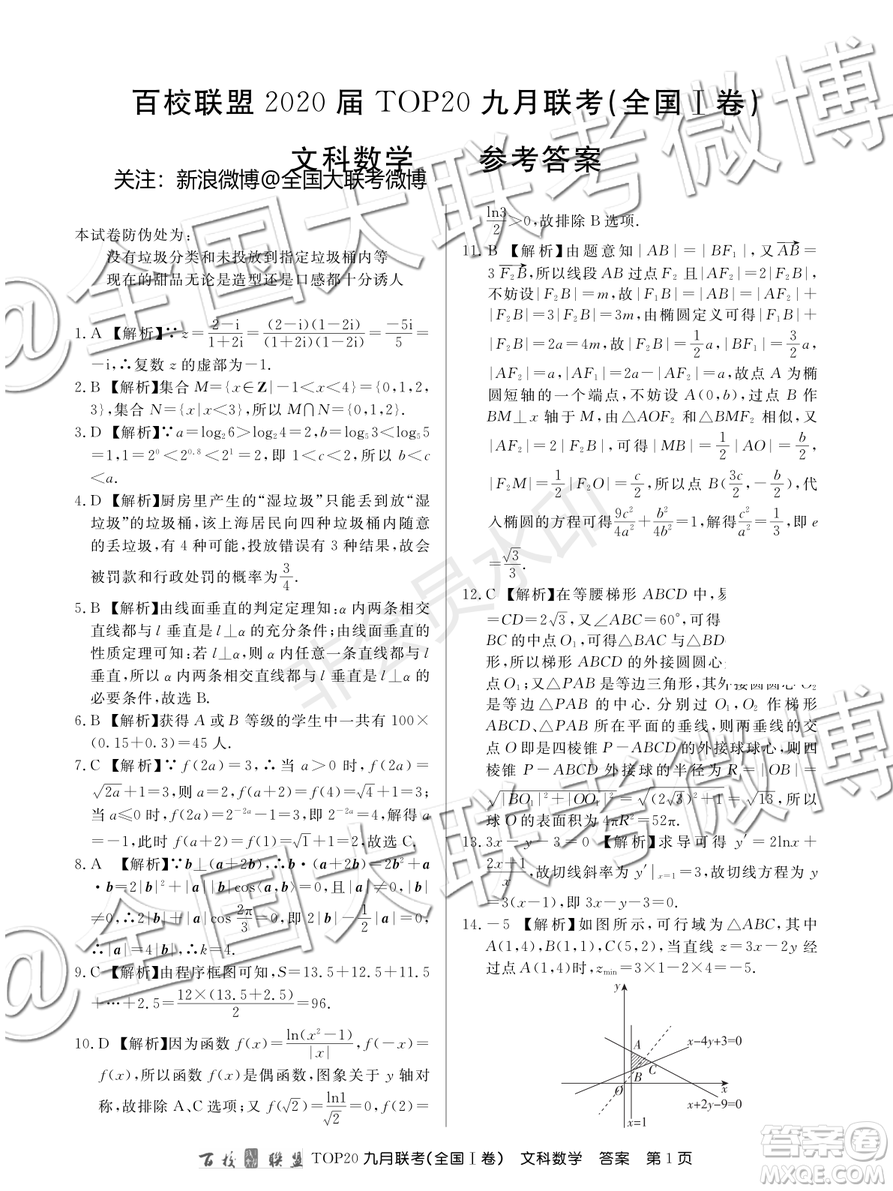 百校联盟 2020 届 TOP20 九月联考(全国Ⅰ卷)
文科数学 参考答案
关注：新浪微博@全国大联考微博
本试卷防伪处为：
没有垃圾分类和未投放到指定垃圾桶内等
现在的甜品无论是造型还是口感都十分诱人
1. A 【解析】∵z=\frac{2-i}{1+2i}=\frac{(2-i)(1-2i)}{(1+2i)(1-2i)}=\frac{-5i}{5}=
-i,∴复数 z 的虚部为-1.
2. B 【解析】集合 M={x∈Z|-1<x<4}={0,1,2,
3},集合 N={x|x<3},所以 M∩N={0,1,2}.
3. D 【解析】∵a=log₂6>log₂4=2,b=log₅3<log₅5
=1,1=2⁰<2^{0.8}<2¹=2,即 1<c<2,所以 b<c
<a.
4. D 【解析】厨房里产生的“湿垃圾”只能丢到放“湿
垃圾”的垃圾桶,该上海居民向四种垃圾桶内随意
的丢垃圾,有 4 种可能,投放错误有 3 种可能,故会
被罚款和行政处罚的概率为\frac{3}{4}.
5. B 【解析】由线面垂直的判定定理知:α 内两条相交
直线都与 l 垂直是 l⊥α 的充分条件;由线面垂直的
性质定理可知:若 l⊥α,则 α 内任意一条直线都与 l
垂直,所以 α 内两条直线都与 l 垂直是 l⊥α 的
必要条件,故选 B.
6. B 【解析】获得 A 或 B 等级的学生中一共有 100×
(0.15+0.3)=45 人.
7. C 【解析】∵f(2a)=3,∴当 a>0 时,f(2a)=
√2a+1=3,则 a=2,f(a+2)=f(4)=√4+1=3;
当 a≤0 时,f(2a)=2^{-2a}-1=3,即 2^{-2a}=4,解得 a
=-1,此时 f(a+2)=f(1)=√1+1=2,故选 C.
8. A 【解析】∵b⊥(a+2b),∴b·(a+2b)=2b²+a
·b=2|b|²+|a||b|cos⟨a,b⟩=0,又∵|b|
≠0,∴2|b|+|a|cos\frac{2π}{3}=0,即 2|b|=\frac{1}{2}|a|,
∴|a|=4|b|,∴k=4.
9. C 【解析】由程序框图可知,S=13.5+12.5+11.5
+…+2.5=\frac{12×(13.5+2.5)}{2}=96.
10. D 【解析】因为函数 f(x)=\frac{ln(x²-1)}{|x|},f(-x)=
f(x),所以函数 f(x)是偶函数,图象关于 y 轴对
称,故排除 A、C 选项;又 f(√2)=\frac{ln1}{√2}=0,f(2)=
\frac{ln3}{2}>0,故排除 B 选项.
11. B 【解析】由题意知|AB|=|BF₁|,又\overrightarrow{AB}=
3\overrightarrow{F₂B},所以线段 AB 过点 F₂ 且|AF₂|=2|F₂B|,
不妨设|F₂B|=m,故|F₁B|=|AB|=|AF₂|+
|F₂B|=3|F₂B|=3m,由椭圆定义可得|F₁B|+
|F₂B|=2a=4m,故|F₂B|=\frac{1}{2}a,|BF₁|=\frac{3}{2}a,
|AF₂|=a,|AF₁|=2a-|AF₂|=a,故点 A 为椭
圆短轴的一个端点,不妨设 A(0,b),过点 B 作
BM⊥x 轴于 M,由△AOF₂ 和△BMF₂ 相似,又
|AF₂|=2|F₂B|,可得|MB|=\frac{1}{2}|AO|=\frac{b}{2},
|F₂M|=\frac{1}{2}|F₂O|=\frac{c}{2},所以点 B(\frac{3c}{2},-\frac{b}{2}),代
入椭圆的方程可得\frac{9c²}{4a²}+\frac{b²}{4b²}=1,解得\frac{c²}{a²}=\frac{1}{3},即 e
=\frac{√3}{3}.
12. C 【解析】在等腰梯形 ABCD 中,易
=CD=2√3,又∠ABC=60°,可得
BC 的中点 O₁,可得△BAC 与△BD
形,所以梯形 ABCD 的外接圆圆心
点 O₁;又△PAB 是等边三角形,其外接圆圆心 O₂
是等边△PAB 的中心. 分别过 O₁,O₂ 作梯形
ABCD、△PAB 所在平面的垂线,则两垂线的交
点 O 即是四棱锥 P-ABCD 的外接球球心,则四
棱锥 P-ABCD 外接球的半径为 R=|OB|=
√|BO₁|²+|OO₁|²=√(2√3)²+1=√13,所以
球 O 的表面积为 4πR²=52π.
13. 3x-y-3=0 【解析】求导可得 y′=2lnx+
\frac{2x+1}{x},故切线斜率为 y′|ₓ₌₁=3,故切线方程为 y
=3(x-1),即 3x-y-3=0.
14. -5 【解析】如图所示,可行域为△ABC,其中
A(1,4),B(1,1),C(5,2),当直线 z=3x-2y 经
过点 A(1,4)时,z_{min}=3×1-2×4=-5.
y
x-4y+3=0
A
C
B
O
x
x+2y-9=0
x=1
百校联盟 TOP20 九月联考(全国Ⅰ卷) 文科数学 答案 第 1 页
@全国大联考微博
@全国大联考微博
非会员水印
答案圈